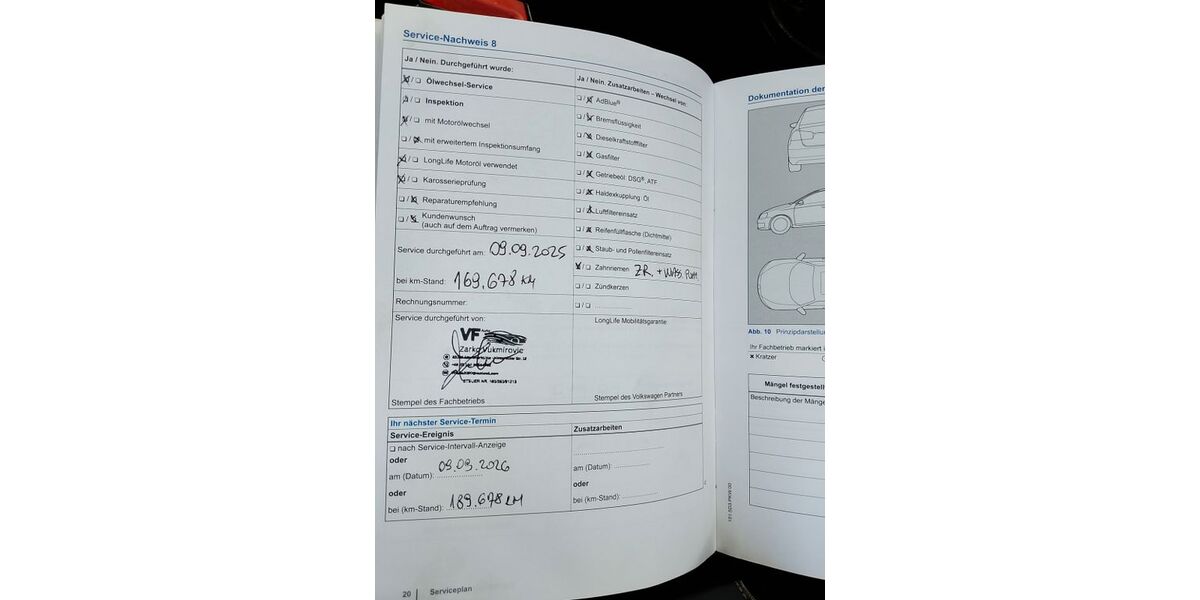 Service-Nachweis 8
Ja / Nein. Durchgeführt wurde:
Ölwechsel-Service
Inspektion
mit Motorölwechsel
mit erweitertem Inspektionsumfang
LongLife Motoröl verwendet
Karosserieprüfung
Reparaturempfehlung
Kundenwunsch
(auch auf dem Auftrag vermerken)
Service durchgeführt am: 09.09.2025
bei km-Stand: 169.678 KM
Rechnungsnummer:
Service durchgeführt von:
VF Auto
Zarko Vukmirovic
STEUER NR.
Stempel des Fachbetriebs
Ja / Nein. Zusatzarbeiten – Wechsel von:
AdBlue®
Bremsflüssigkeit
Dieselkraftstofffilter
Gasfilter
Getriebeöl: DSG®, ATF
Haldexkupplung: Öl
Luftfiltereinsatz
Reifenfüllflasche (Dichtmittel)
Staub- und Pollenfiltereinsatz
Zahnriemen ZR. + WASS. PUM
Zündkerzen
LongLife Mobilitätsgarantie:
Stempel des Volkswagen Partners
Ihr nächster Service-Termin
Service-Ereignis
nach Service-Intervall-Anzeige
oder
am (Datum): 09.09.2026
oder
bei (km-Stand): 189.678 KM
Zusatzarbeiten
am (Datum):
oder
bei (km-Stand):
20 | Serviceplan
Dokumentation der
Abb. 10 Prinzipdarstellun
Ihr Fachbetrieb markiert i
x Kratzer
Mängel festgestell
Beschreibung der Mänge